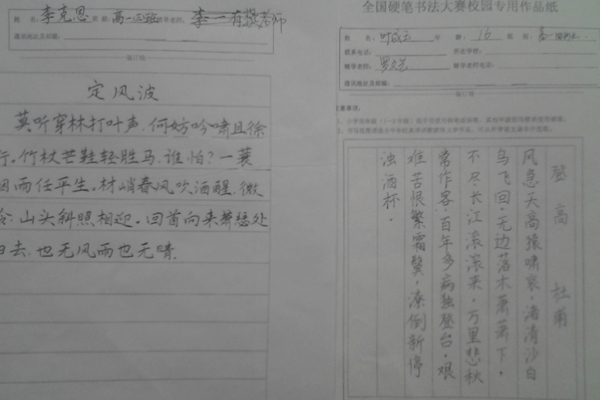 姓 名: 李克恩
定风波
莫听穿林打叶声,何妨吟啸且徐
行,竹杖芒鞋轻胜马,谁怕?一蓑
烟雨任平生,料峭春风吹酒醒,微
冷,山头斜照相迎,回首向来萧瑟处
归去,也无风雨也无晴
全国硬笔书法大赛校园专用作品纸
姓 名: 年 龄: 16 班 级:
联系电话: 所在学校:
辅导老师: 辅导老师电话:
登高 杜甫
风急天高猿啸哀,渚清沙白
鸟飞回,无边落木萧萧下,
不尽长江滚滚来,万里悲秋
常作客,百年多病独登台,艰
难苦恨繁霜鬓,潦倒新停
浊酒杯。